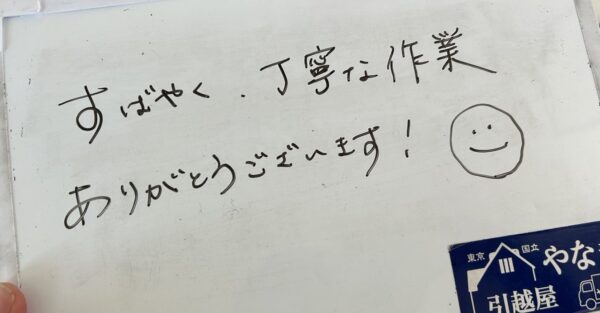 すばやく、丁寧な作業
ありがとうございます!
東京 国立
やな
引越屋